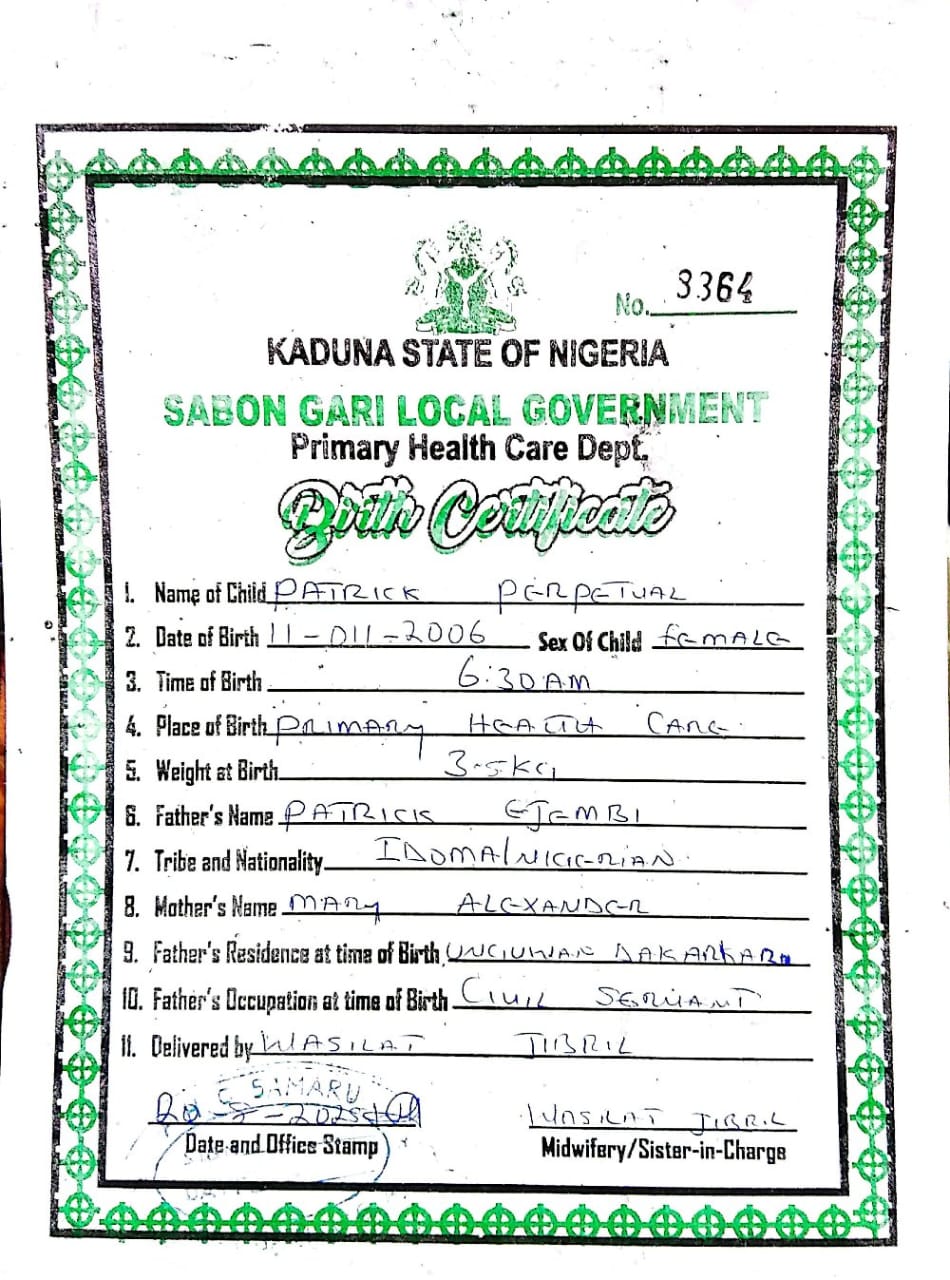 No. 3364
KADUNA STATE OF NIGERIA
SABON GARI LOCAL GOVERNMENT
Primary Health Care Dept.
Birth Certificate
1. Name of Child PATRICK PERPETUAL
2. Date of Birth 11-011-2006 Sex Of Child FEMALE
3. Time of Birth 6:30AM
4. Place of Birth PRIMARY HEALTH CARE
5. Weight at Birth 3.5KG
6. Father's Name PATRICK EJEMBI
7. Tribe and Nationality IDOMA/NIGERIAN
8. Mother's Name MARY ALEXANDER
9. Father's Residence at time of Birth UNGUWAN DAKARKARI
10. Father's Occupation at time of Birth CIVIL SERVANT
11. Delivered by WASILAT JIBRIL
SAMARU
WASILAT JIBRIL
Date and Office Stamp Midwifery/Sister-in-Charge